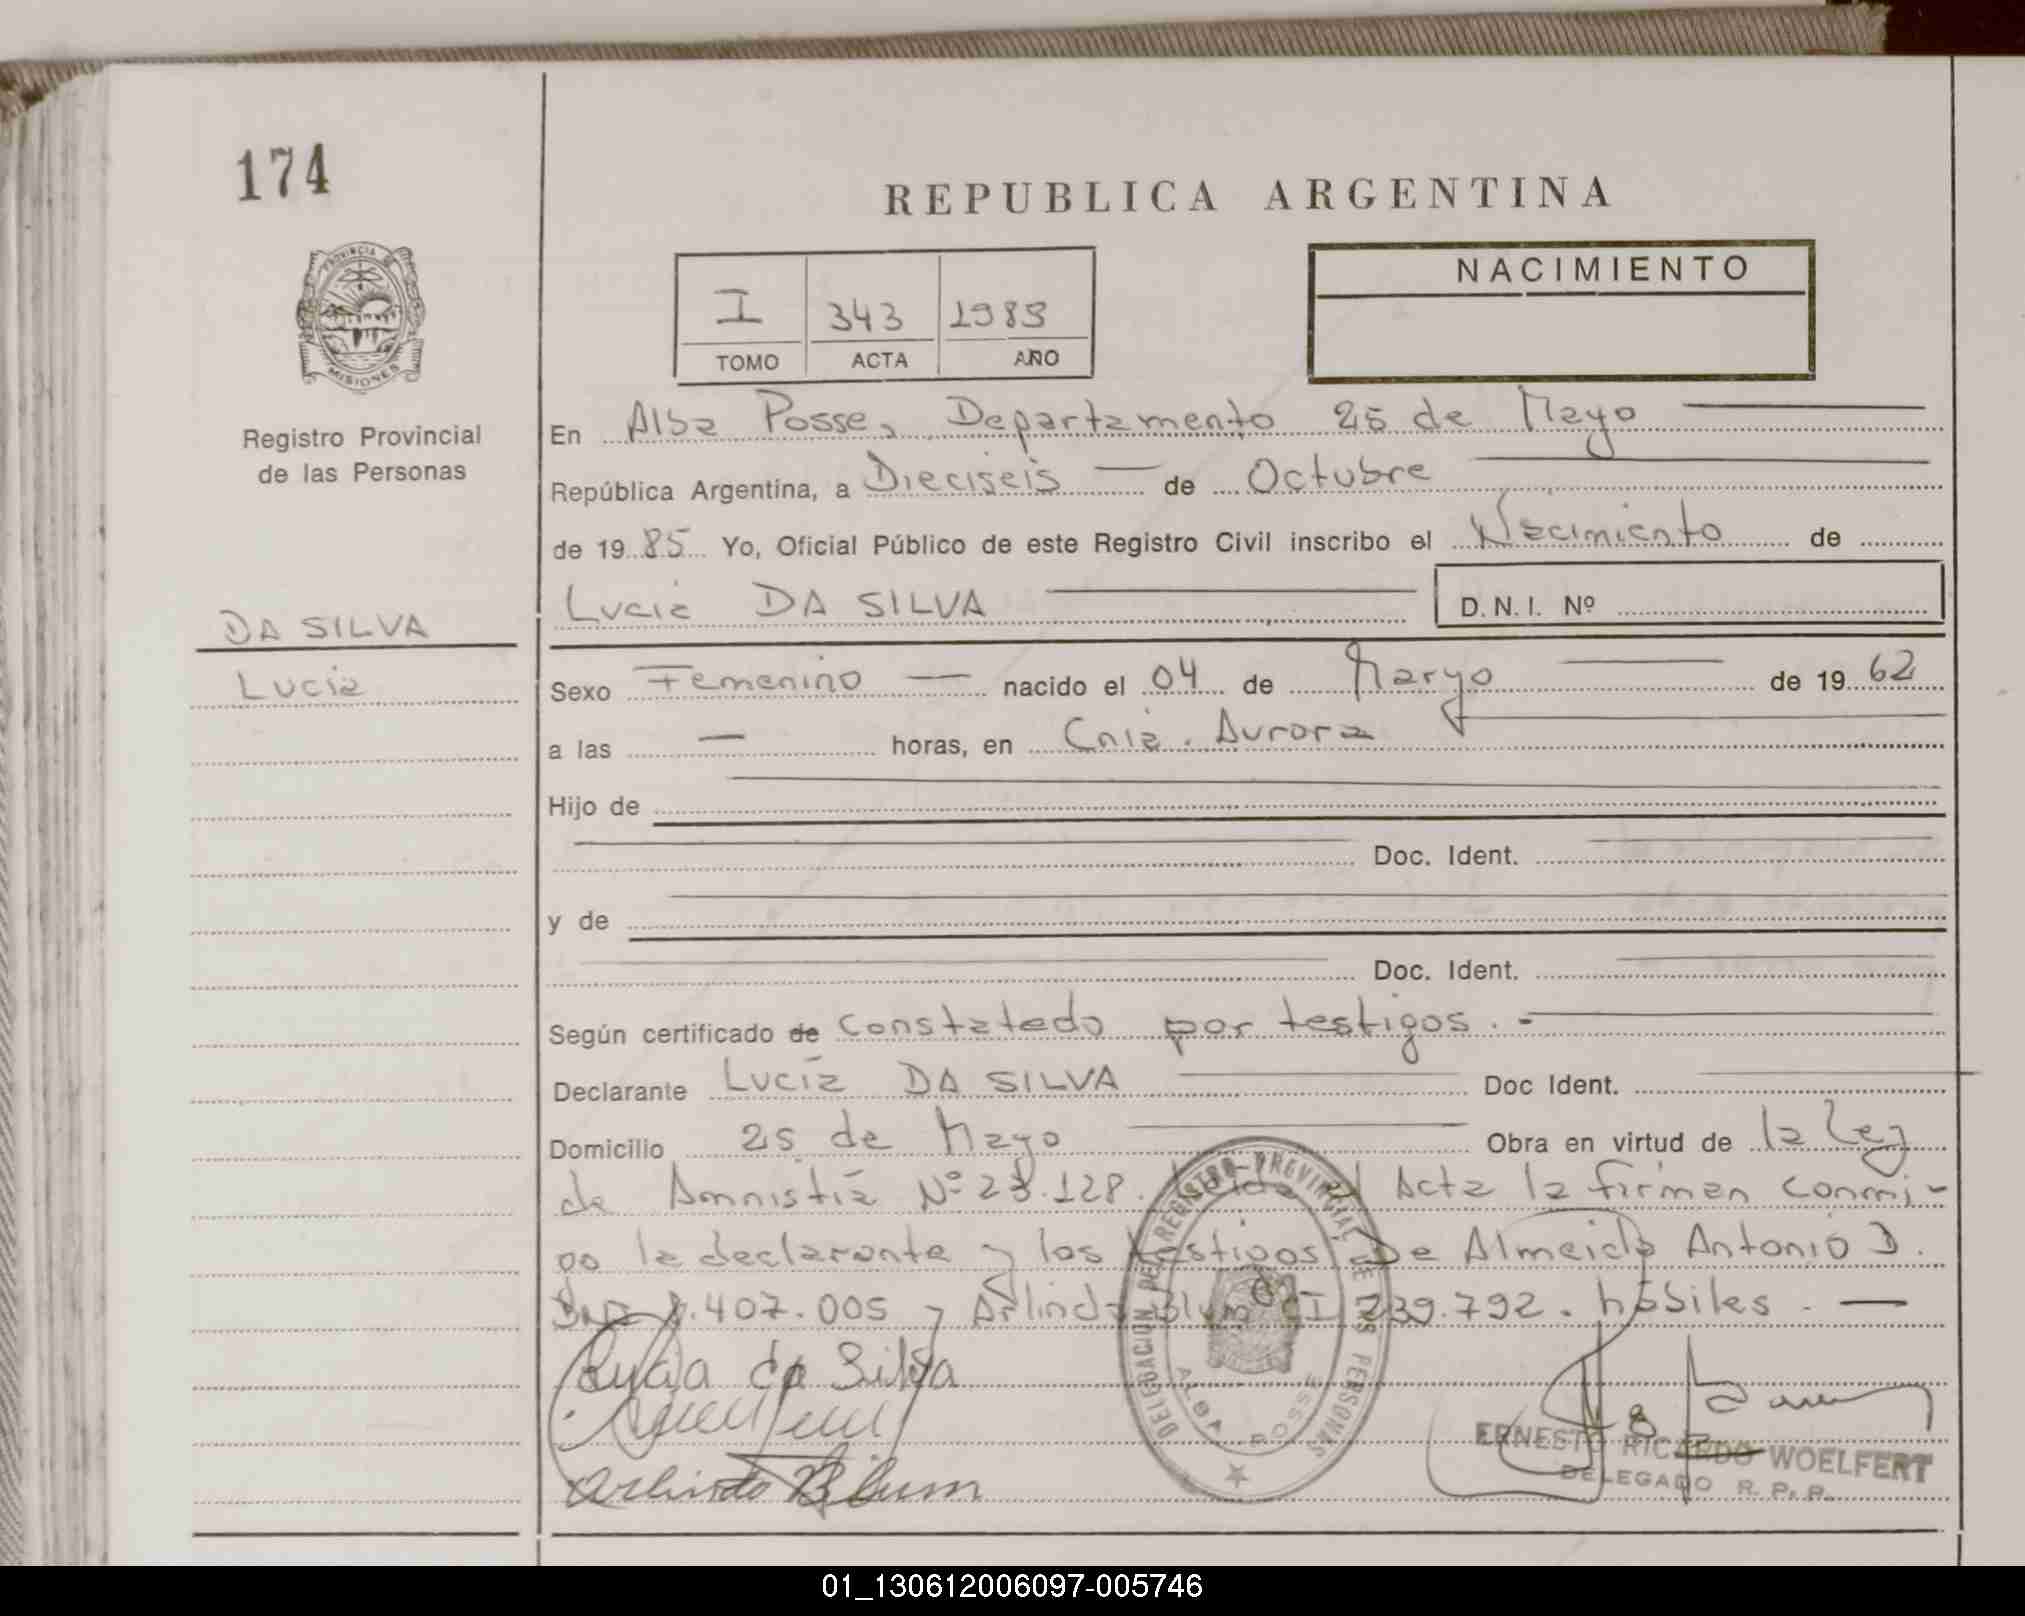 174
REPUBLICA ARGENTINA
PROVINCIA DE
MISIONES
Registro Provincial
de las Personas
I 343 1985
TOMO ACTA AÑO
NACIMIENTO
En Alba Posse, Departamento 25 de Mayo
República Argentina, a Dieciseis de Octubre
de 1985 Yo, Oficial Público de este Registro Civil inscribo el Nacimiento de
Lucia DA SILVA D.N.I. Nº
DA SILVA
Lucia
Sexo Femenino nacido el 04 de Maryo de 1962
a las — horas, en Cnia. Aurora
Hijo de
Doc. Ident.
y de
Doc. Ident.
Según certificado de Constatado por testigos.-
Declarante Lucia DA SILVA Doc Ident.
Domicilio 25 de Mayo Obra en virtud de la Ley
de Amnistia Nº 23.128. Leida el Acta la firman conmi-
go la declarante y los testigos De Almeida Antonio D.
407.005 y Arlindo Blum CI 239.792. hábiles. —
Lucia da Silva
Arlindo Blum
DELEGACION DEL REGISTRO PROVINCIAL DE LAS PERSONAS
ALBA POSSE
ERNESTO RICARDO WOELFERT
DELEGADO R. P. P.
01_130612006097-005746